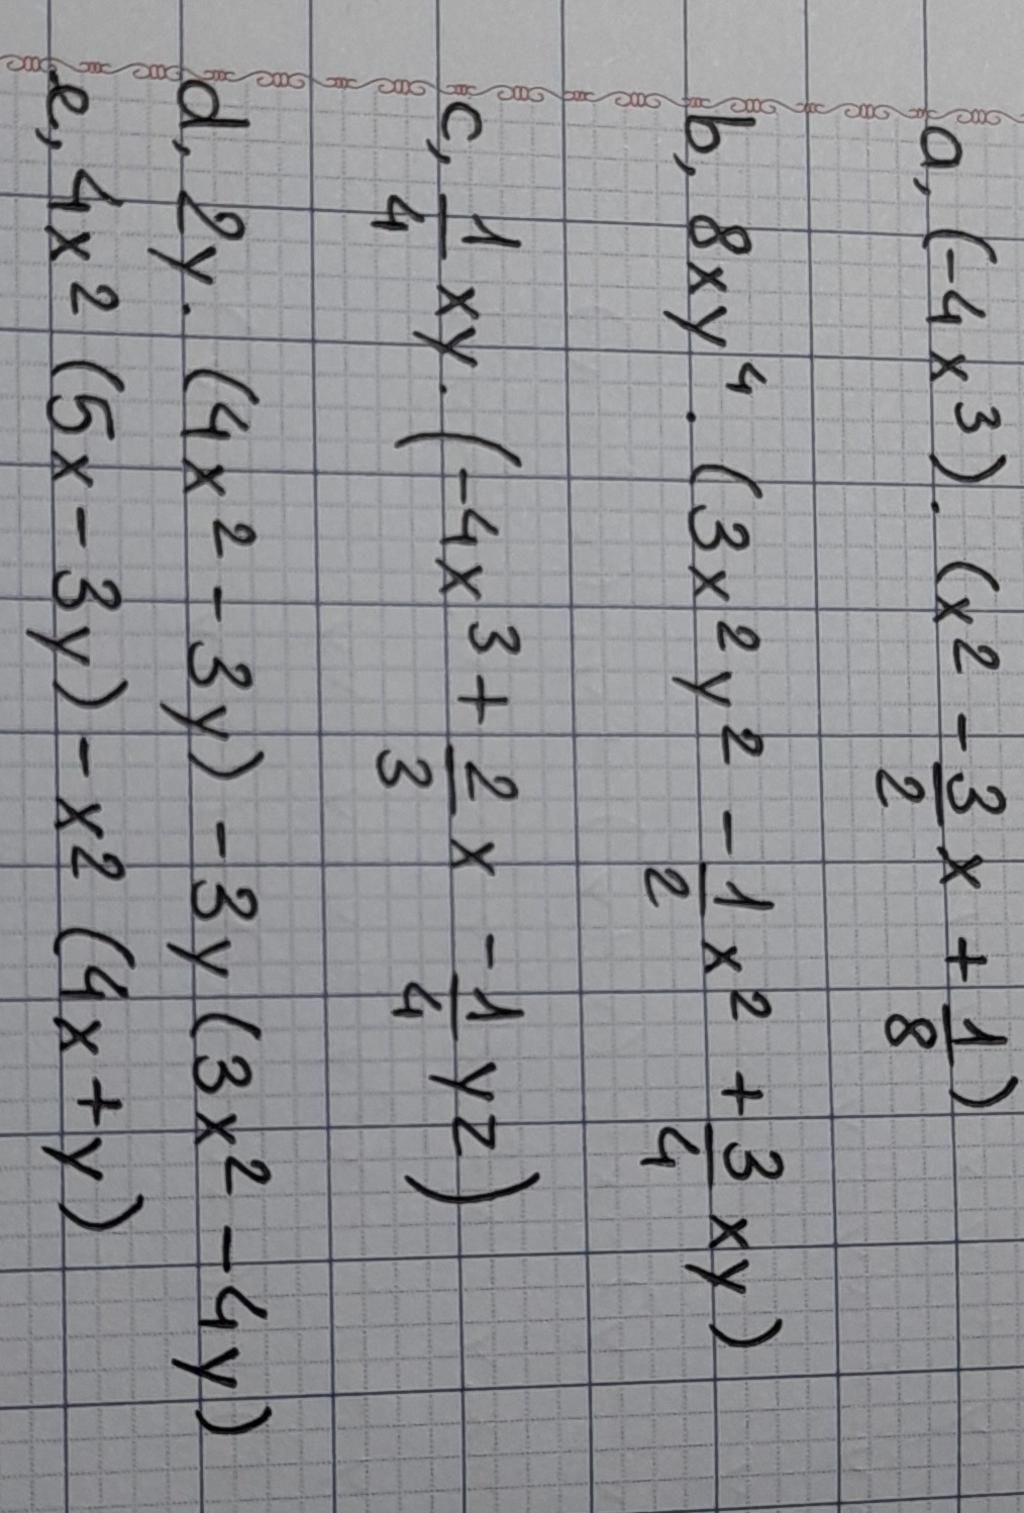 a, (-4x³). (x² - 3/2 x + 1/8)
b, 8xy⁴. (3x²y² - 1/2 x² + 3/4 xy)
c, 1/4 xy. (-4x³ + 2/3 x - 1/4 yz)
d, 2y. (4x² - 3y) - 3y (3x² - 4y)
e, 4x² (5x - 3y) - x² (4x + y)